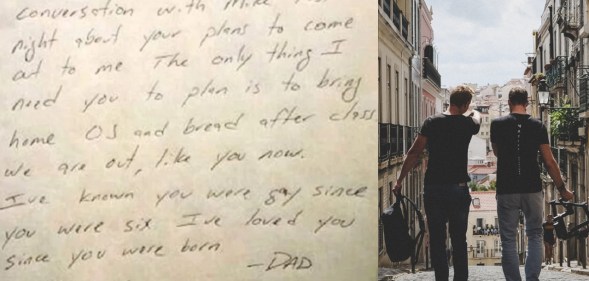 conversation with Mike
night about your plans to come
out to me The only thing I
need you to plan is to bring
home OJ and bread after class
we are out, like you now.
I've known you were gay since
you were six I've loved you
since you were born
-DAD